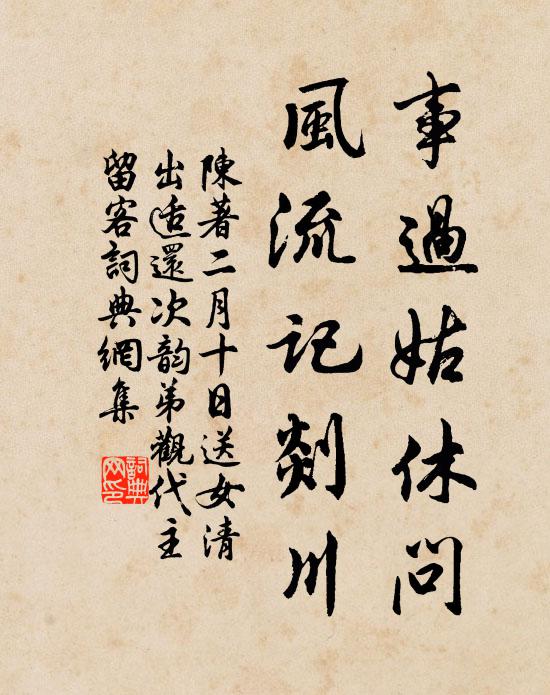 事過姑休問
風流記剡川
陳著二月十日送女清
出適還次韵弟觀代主
留客詞典網集
詞典网印